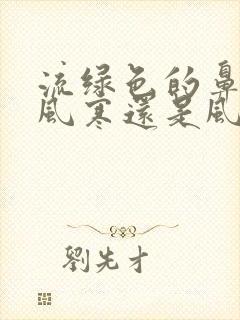 流绿色的鼻
风寒還是风
劉先才